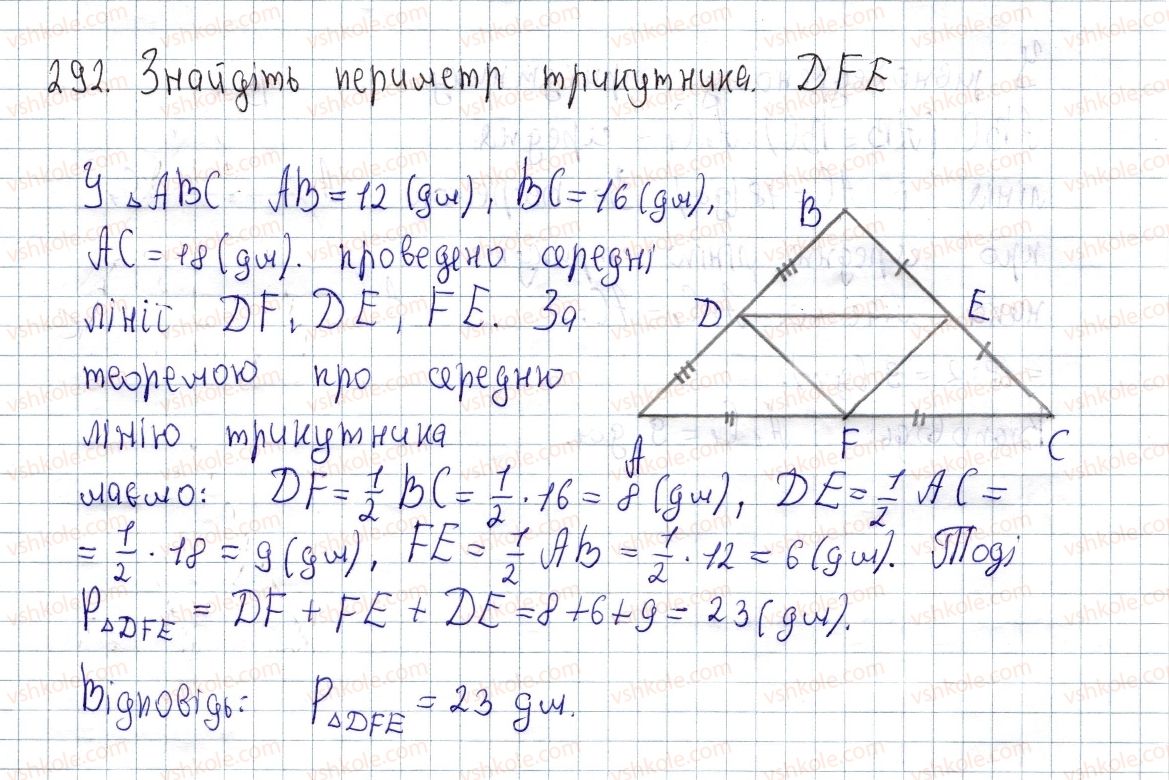 292. Знайдіть периметр трикутника. DFE
У △ABC AB = 12 (дм), BC = 16 (дм),
AC = 18 (дм). проведено середні
лінії DF, DE, FE. За
теоремою про середню
лінію трикутника
маємо: DF = 1/2 BC = 1/2 · 16 = 8 (дм), DE = 1/2 AC =
= 1/2 · 18 = 9 (дм), FE = 1/2 AB = 1/2 · 12 = 6 (дм). Тоді
P△DFE = DF + FE + DE = 8 + 6 + 9 = 23 (дм).
Відповідь: P△DFE = 23 дм.
B
D
E
A
F
C
vshkole.com